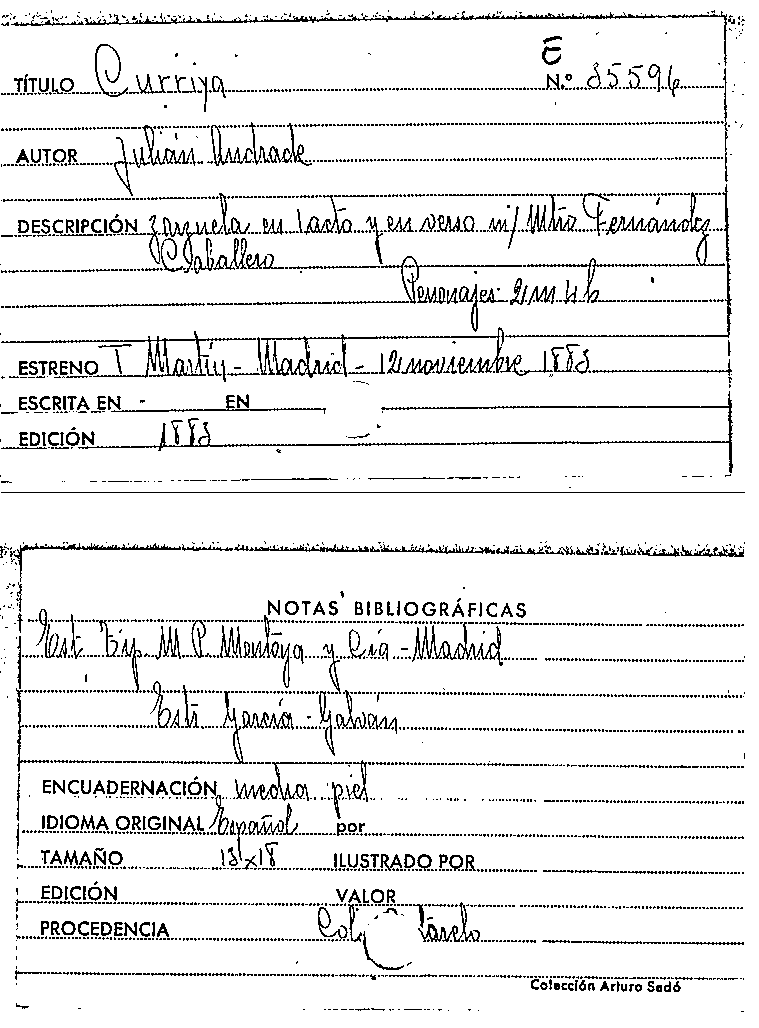 E
TÍTULO Curriya N.º 85596
AUTOR Julián Andrade
DESCRIPCIÓN Zarzuela en 1 acto y en verso m/ Mtro Fernández
Caballero
Personajes: 2 m 4 h
ESTRENO T Martín - Madrid - 12 noviembre 1883
ESCRITA EN - EN
EDICIÓN 1883
NOTAS BIBLIOGRÁFICAS
Est. Tip. M P Montoya y Cía - Madrid
Estr García - Galván
ENCUADERNACIÓN media piel
IDIOMA ORIGINAL Español por
TAMAÑO 13x18 ILUSTRADO POR
EDICIÓN VALOR
PROCEDENCIA
Colección Arturo Sedó